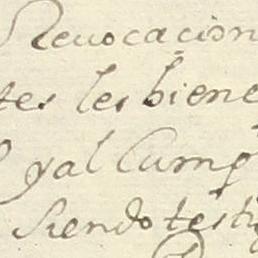 Revocacion
tes les biene
y al Cump
siendo testig